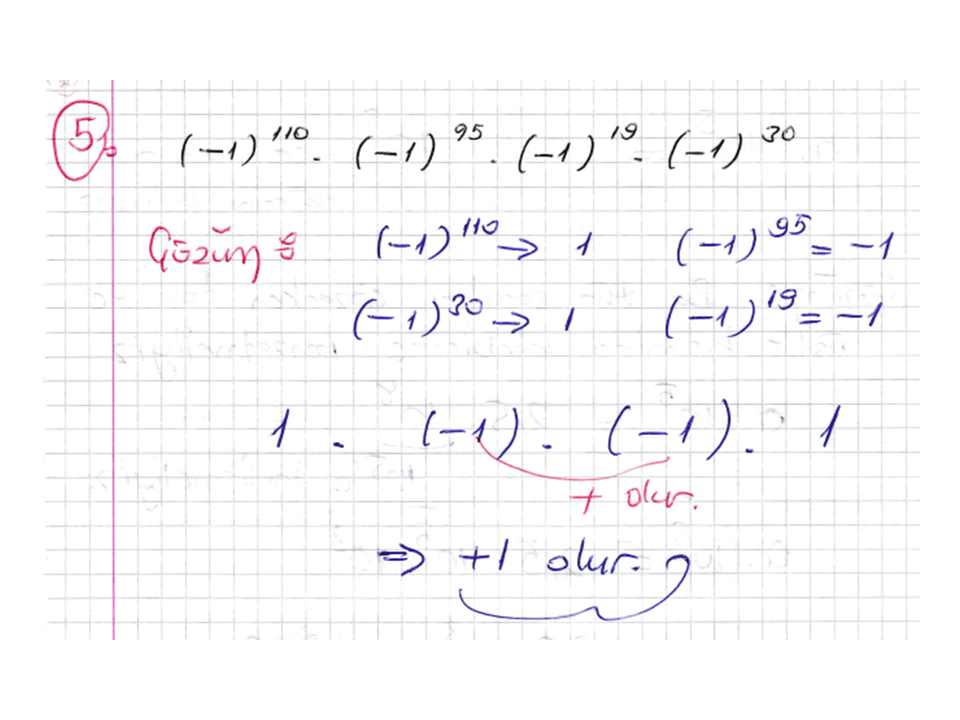 5) (-1)^110 . (-1)^95 . (-1)^19 . (-1)^30
Çözüm : (-1)^110 → 1 (-1)^95 = -1
(-1)^30 → 1 (-1)^19 = -1
1 . (-1) . (-1) . 1
+ olur.
⇒ +1 olur.